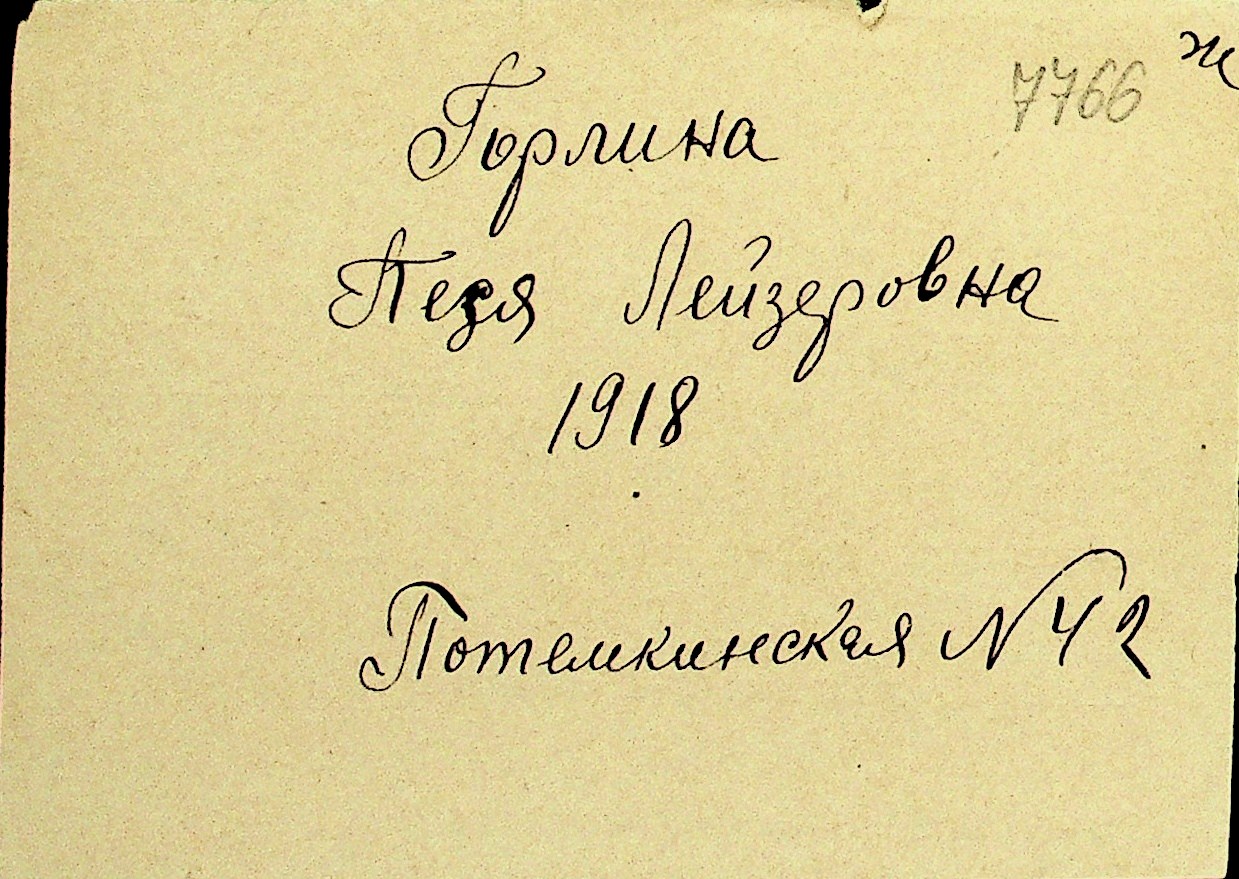 ж
7766
Горлина
Песя Лейзеровна
1918
Потемкинская N 42